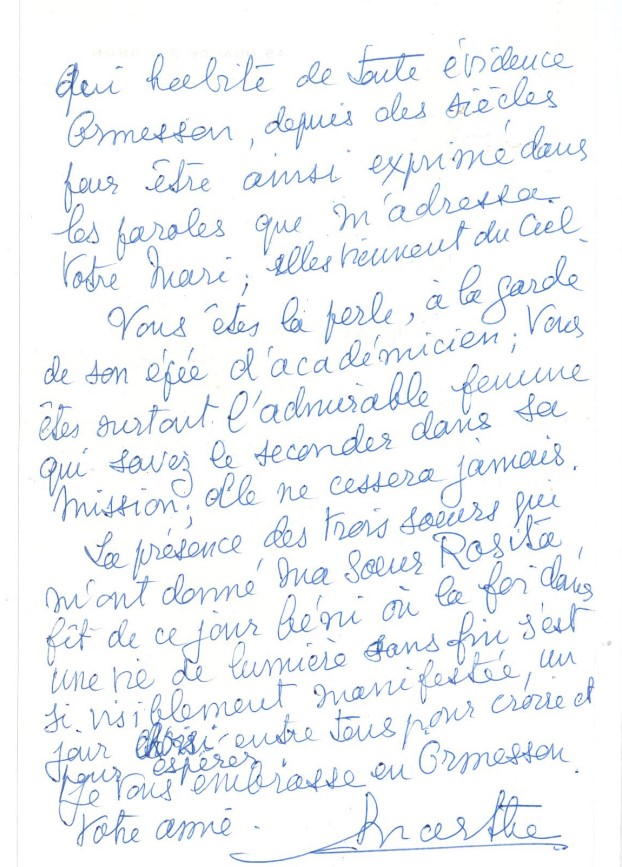 qui habite de toute évidence
Ormesson, depuis des siècles
pour être ainsi exprimé dans
les paroles que m'adressa
Votre Mari ; elles viennent du Ciel.
Vous êtes la perle, à la garde
de son épée d'académicien ; Vous
êtes surtout l'admirable femme
qui savez le seconder dans sa
mission ; elle ne cessera jamais.
La présence des trois soeurs qui
m'ont donné ma Soeur Rosita,
fît de ce jour béni où la foi dans
une vie de lumière sans fin s'est
si visiblement manifestée, un
jour choisi entre tous pour croire et
pour espérer
Je Vous embrasse en Ormesson
Votre amie.
Marthe